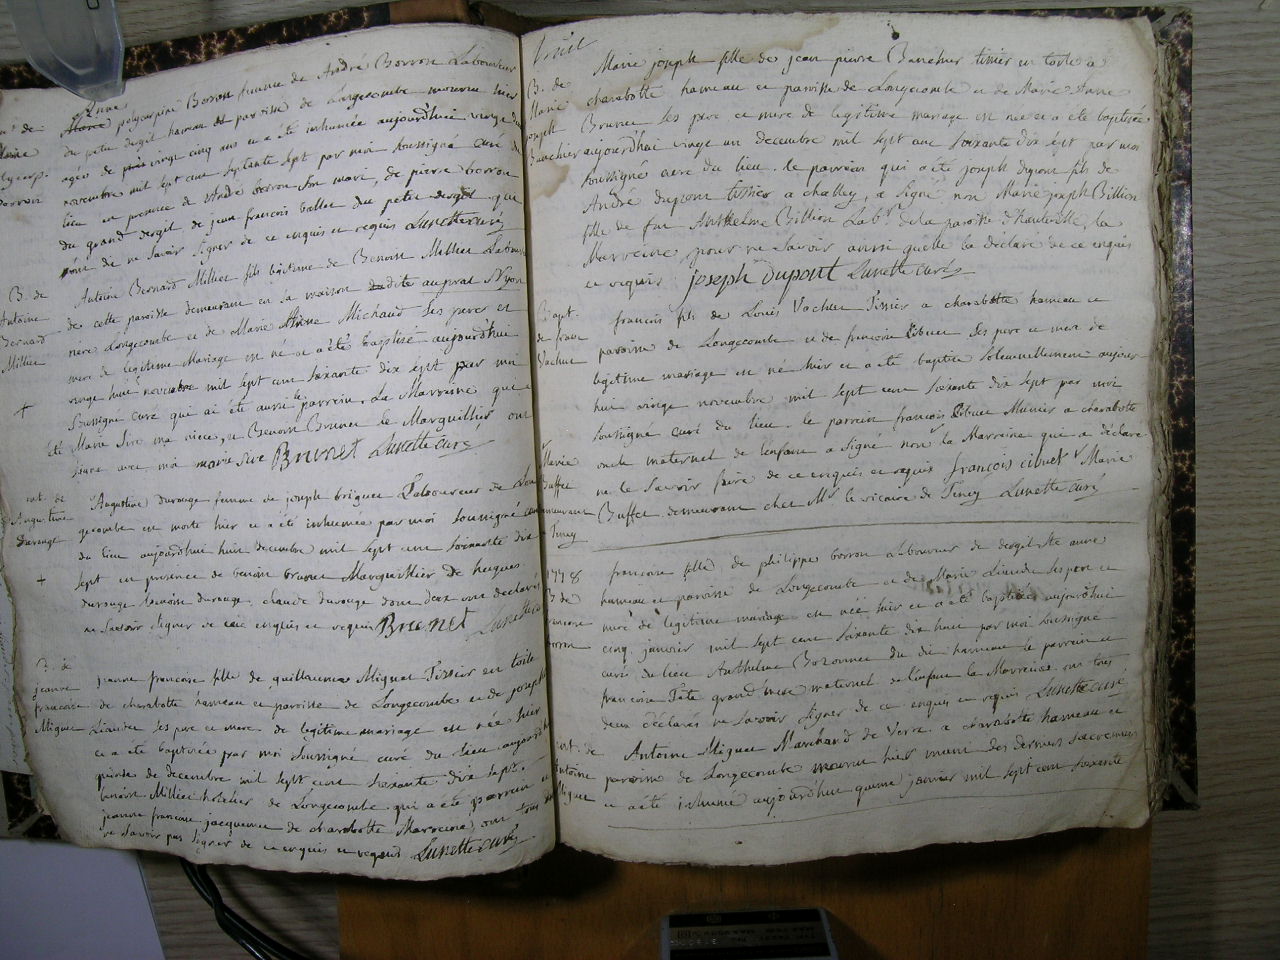 Anne
polycarpine Borron femme de André Borron Laboureur
du petit dergit hameau et paroisse de Longecombe mourut hier
agée de vingt cinq ans et a été inhumée aujourdhui vingt
novembre mil sept cent septante sept par moi soussigné curé du
lieu en presence de André borron son mari, de pierre borron
du grand dergit de jean françois ballet du petit dergit qui
ont dit ne savoir signer de ce enquis et requis Lunette curé
B. de
Antoine
Bernard
Millier
Antoine Bernard Millier fils légitime de Benoit Millier
de cette paroisse demeurant en la maison dite au prat
Longecombe et de Marie Anne Michaud ses pere et
mere de legitime Mariage est né et a été baptisé aujourdhui
vingt huit novembre mil sept cent soixante dix sept par moi
soussigné curé qui ai été aussi le parrein. La Marreine qui a
été Marie Sire ma niece, et Benoit Brunet le Marguillier ont
signé avec moi marie sire Brunet Lunette curé
Augustine
durouge
Augustine durouge femme de joseph briguet Laboureur de Lon
gecombe est morte hier et a été inhumée par moi soussigné curé
du lieu aujourdhui huit decembre mil sept cent soixante dix
sept en presence de benoit brunet Marguillier de hugues
durouge claude durouge dont deux ont declaré
ne savoir signer de ce enquis et requis Brunet Lunette
B. de
jeanne
francoise
Miguet
jeanne francoise fille de guillaume Miguet Tissier en toile
de charabotte hameau et paroisse de Longecombe et de joseph
ses pere et mere de legitime mariage est née hier
et a été baptisée par moi soussigné curé du lieu aujourdhui
quinze de decembre mil sept cent soixante dix sept.
benoit Millier de Longecombe qui a été parrein et
jeanne francoise jacquemet de charabotte Marreine, ont tous
ne savoir pas signer de ce enquis et requis Lunette curé
B. de
Marie
joseph
Banchier
Marie joseph fille de jean pierre Banchier tissier en toile à
charabotte hameau et paroisse de Longecombe et de Marie Anne
Brunet ses pere et mere de legitime mariage est née et a été baptisée
aujourdhui vingt un decembre mil sept cent soixante dix sept par moi
soussigné curé du lieu. le parrein qui a été joseph dupont fils de
André dupont tissier a challey, a signé, non Marie joseph Billion
fille de feu Anthelme Billion Labr de la paroisse d'hauteville, la
Marreine pour ne savoir ainsi quelle la déclaré de ce enquis
et requis joseph Dupont Lunette curé
Bapt.
de fran
Vachet
françois fils de Louis Vochet Tissier a charabotte hameau et
paroisse de Longecombe et de francoise Cibuet ses pere et mere de
legitime mariage est né hier et a été baptisé solemnellement aujour
hui vingt novembre mil sept cent soixante dix sept par moi
soussigné curé du lieu. le parrein françois Cibuet Munier a charabotte
oncle maternel de l'enfant a signé non la Marreine qui a déclaré
ne le savoir faire de ce enquis et requis françois cibuet Marie
Buffet demeurant chez Mr le vicaire de Tency Lunette curé
Marie
Buffet
demeurant
Tency
1778
B. de
francoise
borron
francoise fille de philippe borron Laboureur de dergit
hameau et paroisse de Longecombe et de Marie ses pere et
mere de legitime mariage est née hier et a été baptisée aujourdhui
cinq janvier mil sept cent soixante dix huit par moi soussigné
curé du lieu Anthelme du dit hameau le parrein et
francoise Tête grand mere maternel de l'enfant la Marreine ont tous
deux déclaré ne savoir signer de ce enquis et requis Lunette curé
Antoine
Miguet
Antoine Miguet Marchand de Verre a charabotte hameau et
paroisse de Longecombe mourut hier muni des derniers sacremens
et a été inhumé aujourdhui quinze janvier mil sept cent soixante